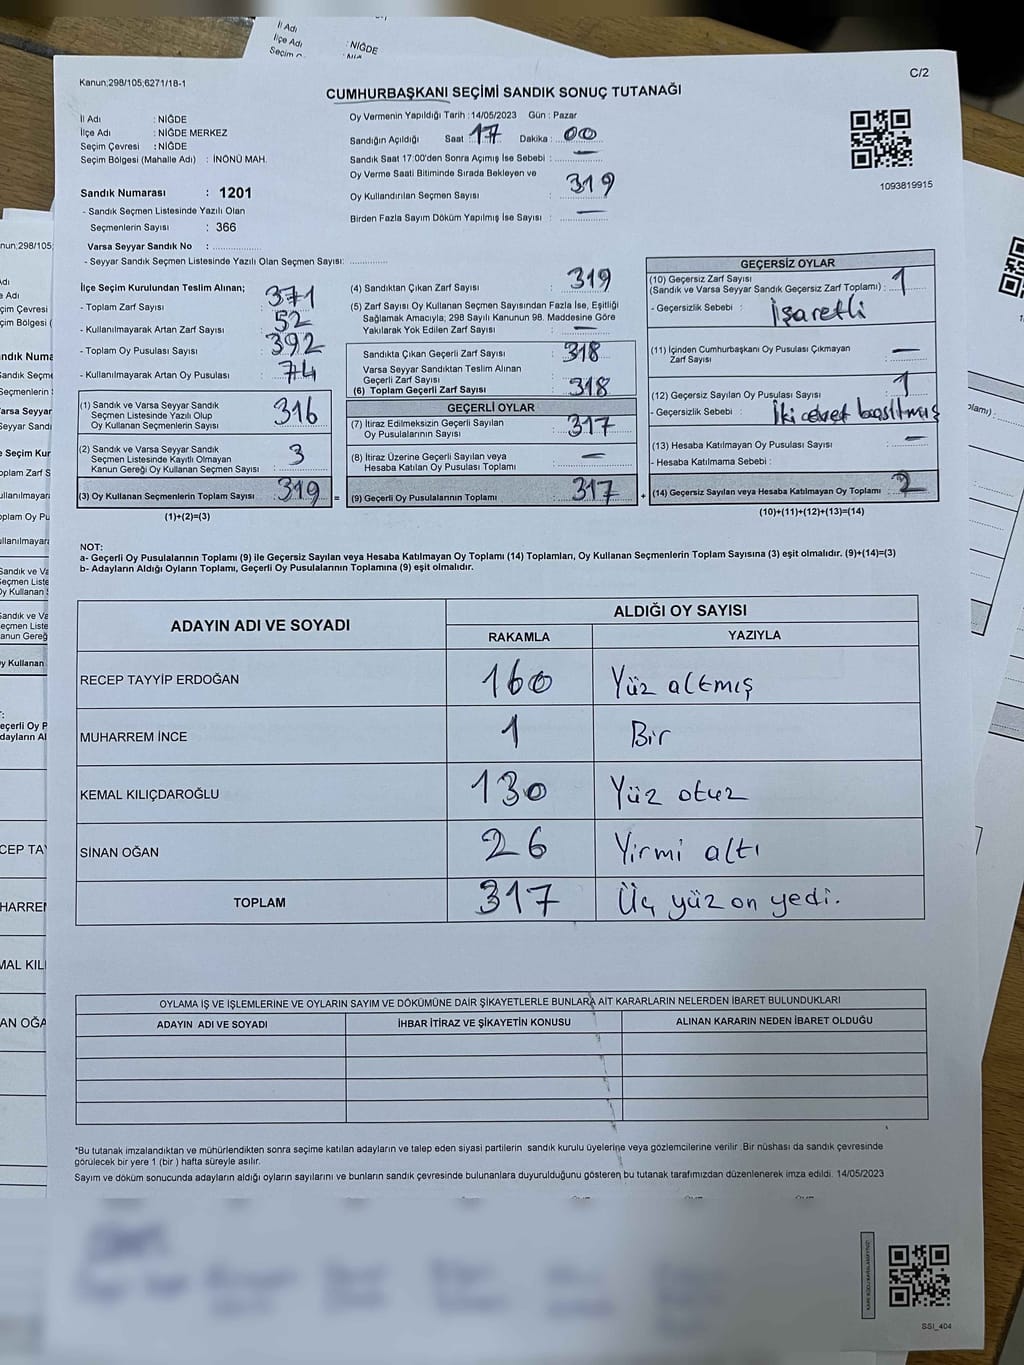 İl Adı
İlçe Adı : NİĞDE
Kanun;298/105;6271/18-1
C/2
CUMHURBAŞKANI SEÇİMİ SANDIK SONUÇ TUTANAĞI
İl Adı : NİĞDE
İlçe Adı : NİĞDE MERKEZ
Seçim Çevresi : NİĞDE
Seçim Bölgesi (Mahalle Adı) : İNÖNÜ MAH.
Sandık Numarası : 1201
- Sandık Seçmen Listesinde Yazılı Olan
Seçmenlerin Sayısı : 366
Varsa Seyyar Sandık No :
- Seyyar Sandık Seçmen Listesinde Yazılı Olan Seçmen Sayısı:
Oy Vermenin Yapıldığı Tarih :14/05/2023 Gün : Pazar
Sandığın Açıldığı Saat 17 Dakika : 00
Sandık Saat 17:00'den Sonra Açımış İse Sebebi : —
Oy Verme Saati Bitiminde Sırada Bekleyen ve
Oy Kullandırılan Seçmen Sayısı : 319
Birden Fazla Sayım Döküm Yapılmış İse Sayısı : —
1093819915
İlçe Seçim Kurulundan Teslim Alınan;
- Toplam Zarf Sayısı : 371
- Kullanılmayarak Artan Zarf Sayısı : 52
- Toplam Oy Pusulası Sayısı : 392
- Kullanılmayarak Artan Oy Pusulası : 74
(1) Sandık ve Varsa Seyyar Sandık
Seçmen Listesinde Yazılı Olup
Oy Kullanan Seçmenlerin Sayısı : 316
(2) Sandık ve Varsa Seyyar Sandık
Seçmen Listesinde Kayıtlı Olmayan
Kanun Gereği Oy Kullanan Seçmen Sayısı : 3
(3) Oy Kullanan Seçmenlerin Toplam Sayısı : 319 =
(1)+(2)=(3)
(4) Sandıktan Çıkan Zarf Sayısı : 319
(5) Zarf Sayısı Oy Kullanan Seçmen Sayısından Fazla İse, Eşitliği
Sağlamak Amacıyla; 298 Sayılı Kanunun 98. Maddesine Göre
Yakılarak Yok Edilen Zarf Sayısı : —
Sandıkta Çıkan Geçerli Zarf Sayısı : 318
Varsa Seyyar Sandıktan Teslim Alınan
Geçerli Zarf Sayısı
(6) Toplam Geçerli Zarf Sayısı : 318
GEÇERLİ OYLAR
(7) İtiraz Edilmeksizin Geçerli Sayılan
Oy Pusulalarının Sayısı : 317
(8) İtiraz Üzerine Geçerli Sayılan veya
Hesaba Katılan Oy Pusulası Toplamı : —
(9) Geçerli Oy Pusulalarının Toplamı : 317 +
GEÇERSİZ OYLAR
(10) Geçersiz Zarf Sayısı
(Sandık ve Varsa Seyyar Sandık Geçersiz Zarf Toplamı) : 1
- Geçersizlik Sebebi : İşaretli
(11) İçinden Cumhurbaşkanı Oy Pusulası Çıkmayan
Zarf Sayısı : —
(12) Geçersiz Sayılan Oy Pusulası Sayısı : 1
- Geçersizlik Sebebi : İki evet basılmış
(13) Hesaba Katılmayan Oy Pusulası Sayısı : —
- Hesaba Katılmama Sebebi :
(14) Geçersiz Sayılan veya Hesaba Katılmayan Oy Toplamı : 2
(10)+(11)+(12)+(13)=(14)
NOT:
a- Geçerli Oy Pusulalarının Toplamı (9) ile Geçersiz Sayılan veya Hesaba Katılmayan Oy Toplamı (14) Toplamları, Oy Kullanan Seçmenlerin Toplam Sayısına (3) eşit olmalıdır. (9)+(14)=(3)
b- Adayların Aldığı Oyların Toplamı, Geçerli Oy Pusulalarının Toplamına (9) eşit olmalıdır.
ADAYIN ADI VE SOYADI ALDIĞI OY SAYISI
RAKAMLA YAZIYLA
RECEP TAYYİP ERDOĞAN 160 Yüz altmış
MUHARREM İNCE 1 Bir
KEMAL KILIÇDAROĞLU 130 Yüz otuz
SİNAN OĞAN 26 Yirmi altı
TOPLAM 317 Üç yüz on yedi.
OYLAMA İŞ VE İŞLEMLERİNE VE OYLARIN SAYIM VE DÖKÜMÜNE DAİR ŞİKAYETLERLE BUNLARA AİT KARARLARIN NELERDEN İBARET BULUNDUKLARI
ADAYIN ADI VE SOYADI İHBAR İTİRAZ VE ŞİKAYETİN KONUSU ALINAN KARARIN NEDEN İBARET OLDUĞU
*Bu tutanak imzalandıktan ve mühürlendikten sonra seçime katılan adayların ve talep eden siyasi partilerin sandık kurulu üyelerine veya gözlemcilerine verilir. Bir nüshası da sandık çevresinde
görülecek bir yere 1 (bir ) hafta süreyle asılır.
Sayım ve döküm sonucunda adayların aldığı oyların sayılarını ve bunların sandık çevresinde bulunanlara duyurulduğunu gösteren bu tutanak tarafımızdan düzenlenerek imza edildi. 14/05/2023
SSI_404